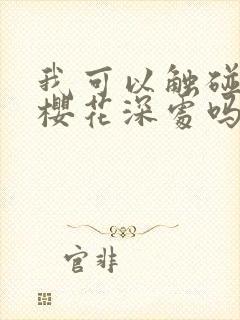 我可以触碰
樱花深处吗
官非